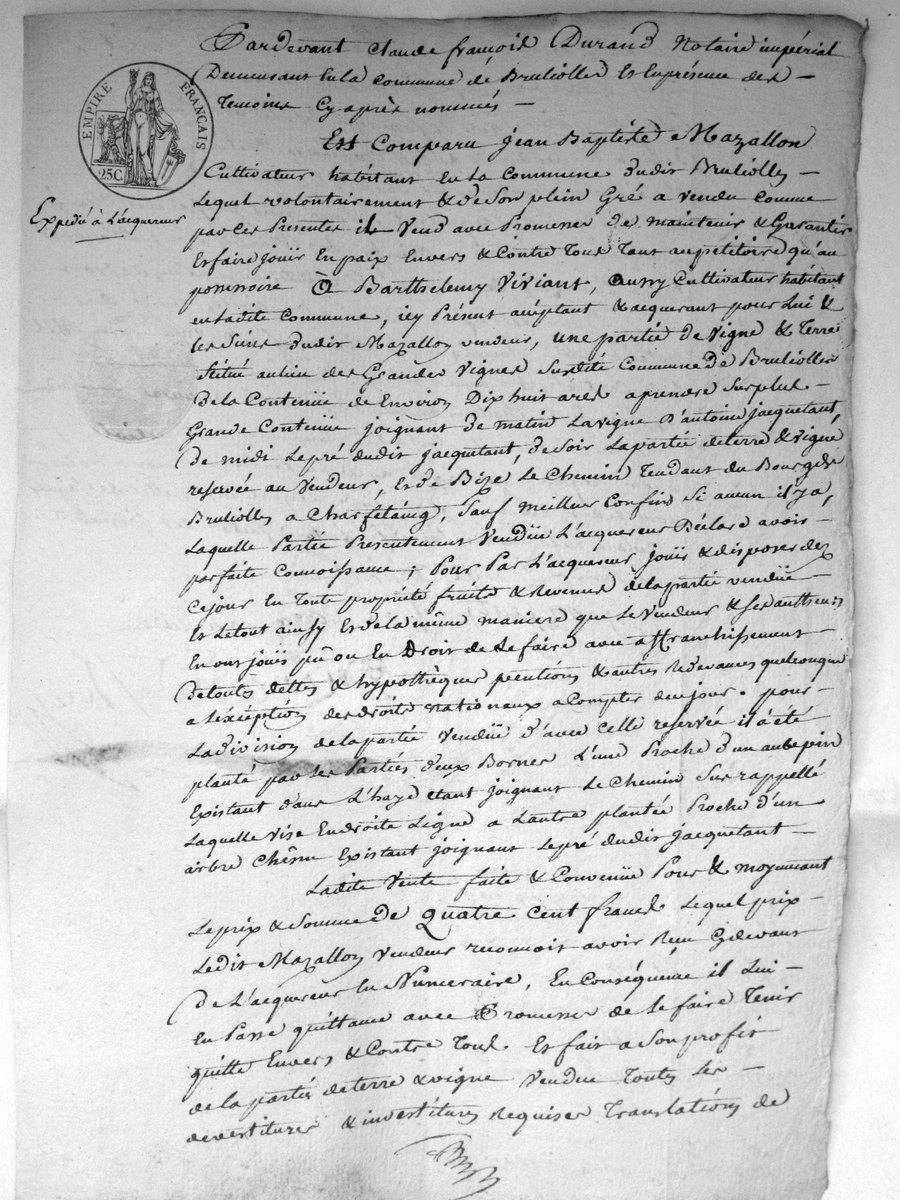 Pardevant Claude françois Durand Notaire impérial
Demeurant En la Commune de Brulioller Et En présence des
Temoins Cy après nommés
Est Comparu jean Baptiste Mazallon
Cultivateur habitant En La Commune dudit Bruliolles
Lequel volontairement & de Son plein Gré a vendu Comme
par Ces Presentes il Vend avec Promesse de maintenir & Garantir
Et faire jouir En paix Envers & Contre Tous Tant au pétitoire qu'au
possessoire A Barthelemy Viviant, Aussy Cultivateur habitant
en Ladite Commune, icy Présent acceptant & acquerant pour Lui &
les Siens dudit Mazallon vendeur, une partie de Vigne & Terre
Scitué au lieu des Grandes Vignes Susdité Commune de Bruliolles
De la Contenüe de Environ Dix huit ares a prendre Sur plus
Grande Contenüe joignant de matin La vigne D'antoine jacquetant,
De midi Le pré dudit jacquetant, de Soir La partie de terre & vigne
reservée au Vendeur, Et de Bize Le Chemin Tendant du Bourg de
Bruliolles a Charfetaing, Sauf meilleur Confins Si aucun il y a,
Laquelle Partie Presentement Vendüe L'acquereur Déclare avoir
parfaite Connoissance; Pour Par L'acquereur jouir & disposer dez
Ce jour En Toute propriété fruits & Revenus de la partie vendüe
Et Le tout ainsy Et de la même maniere que Le Vendeur & Ses autheurs
En ont jouis pû ou En Droit de Le faire avec affranchissement
De touts dettes & hypothèques pentions & autres Redevances quelconque
a L'exéption des droits nationaux a Compter de ce jour. pour
La division de la partie Vendüe d'avec Celle reservée il a été
planté par Les Parties deux Bornes L'une Proche d'un aubepin
Existant dans L'haye étant joignant Le Chemin Sus rappellé
Laquelle Vise En droite Ligne a L'autre plantée Proche d'un
arbre Chêne Existant joignant Le pré dudit jacquetant
Ladite Vente faite & Convenüe Pour & moyennant
Le prix & Somme de Quatre Cent francs Lequel prix
Ledit Mazallon Vendeur reconnoit avoir Reçu Cydevant
De L'acquereur En Numeraire, En Conséquence il Lui
En Passe quittance avec Promesse de Le faire Tenir
quitte Envers & Contre Tous Et fait a Son profit
de la partie de terre & vigne Vendue Toutes Les
devestitures & investitures Requises Translations de
EMPIRE FRANÇAIS
25C
Expédié à L'acquereur